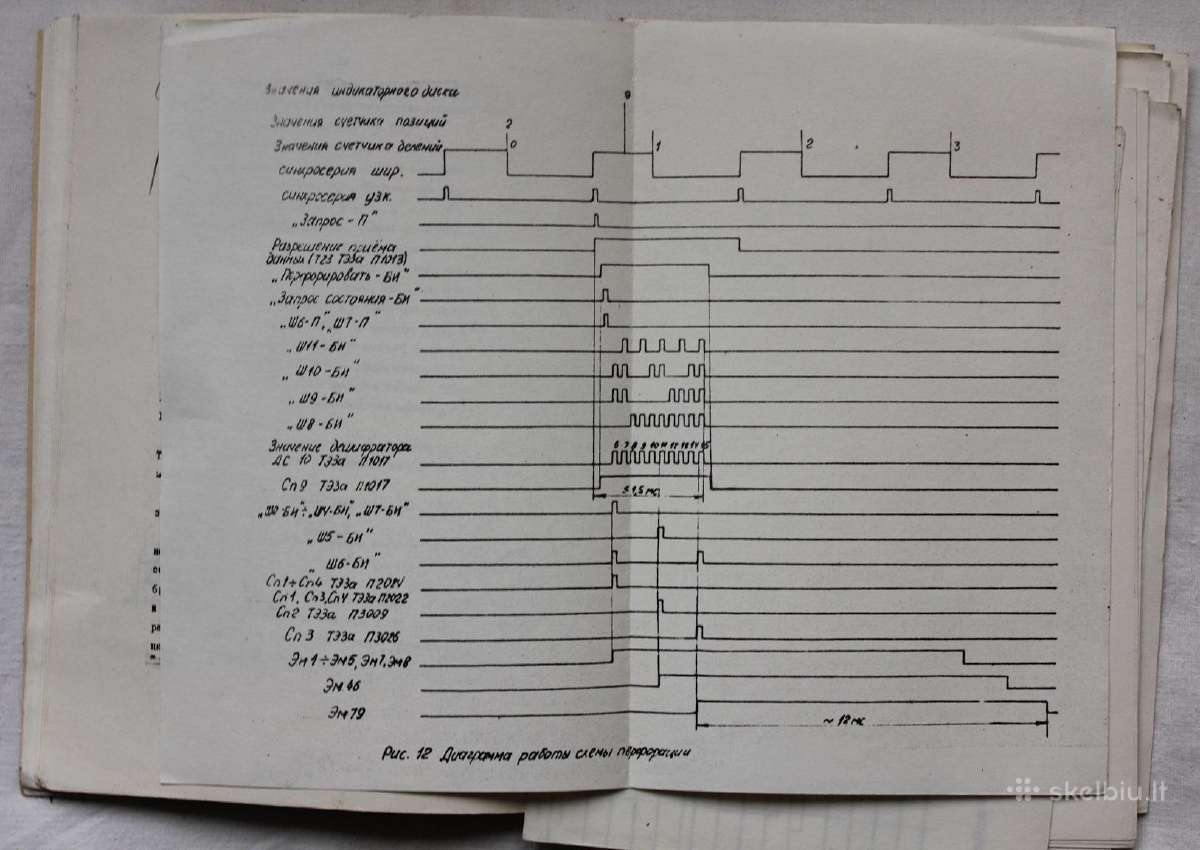 Значения индикаторного диска
9
Значения счетчика позиций
2
Значения счетчика делений
0
1
2
3
синхросерия шир.
синхросерия узк.
„Запрос - П“
Разрешение приёма
данных (Т23 ТЭЗа П1013)
„Перфорировать - БИ“
„Запрос состояния - БИ“
„Ш6-П“, „Ш7-П“
„Ш11-БИ“
„Ш10-БИ“
„Ш9-БИ“
„Ш8-БИ“
Значение дешифратора
6 7 8 9 10 11 12 13 14 15
ДС 10 ТЭЗа П1017
Сп9 ТЭЗа П1017
≤1,5 мс
„Ш4-БИ“, „Ш7-БИ“
„Ш5-БИ“
„Ш6-БИ“
Сп1÷Сп4 ТЭЗа П2014
Сп1, Сп3, Сп4 ТЭЗа П2022
Сп2 ТЭЗа П3009
Сп3 ТЭЗа П3026
Эм1÷Эм5, Эм7, Эм8
Эм46
Эм79
~ 12 мс
Рис. 12 Диаграмма работы схемы перфорации
skelbiu.lt